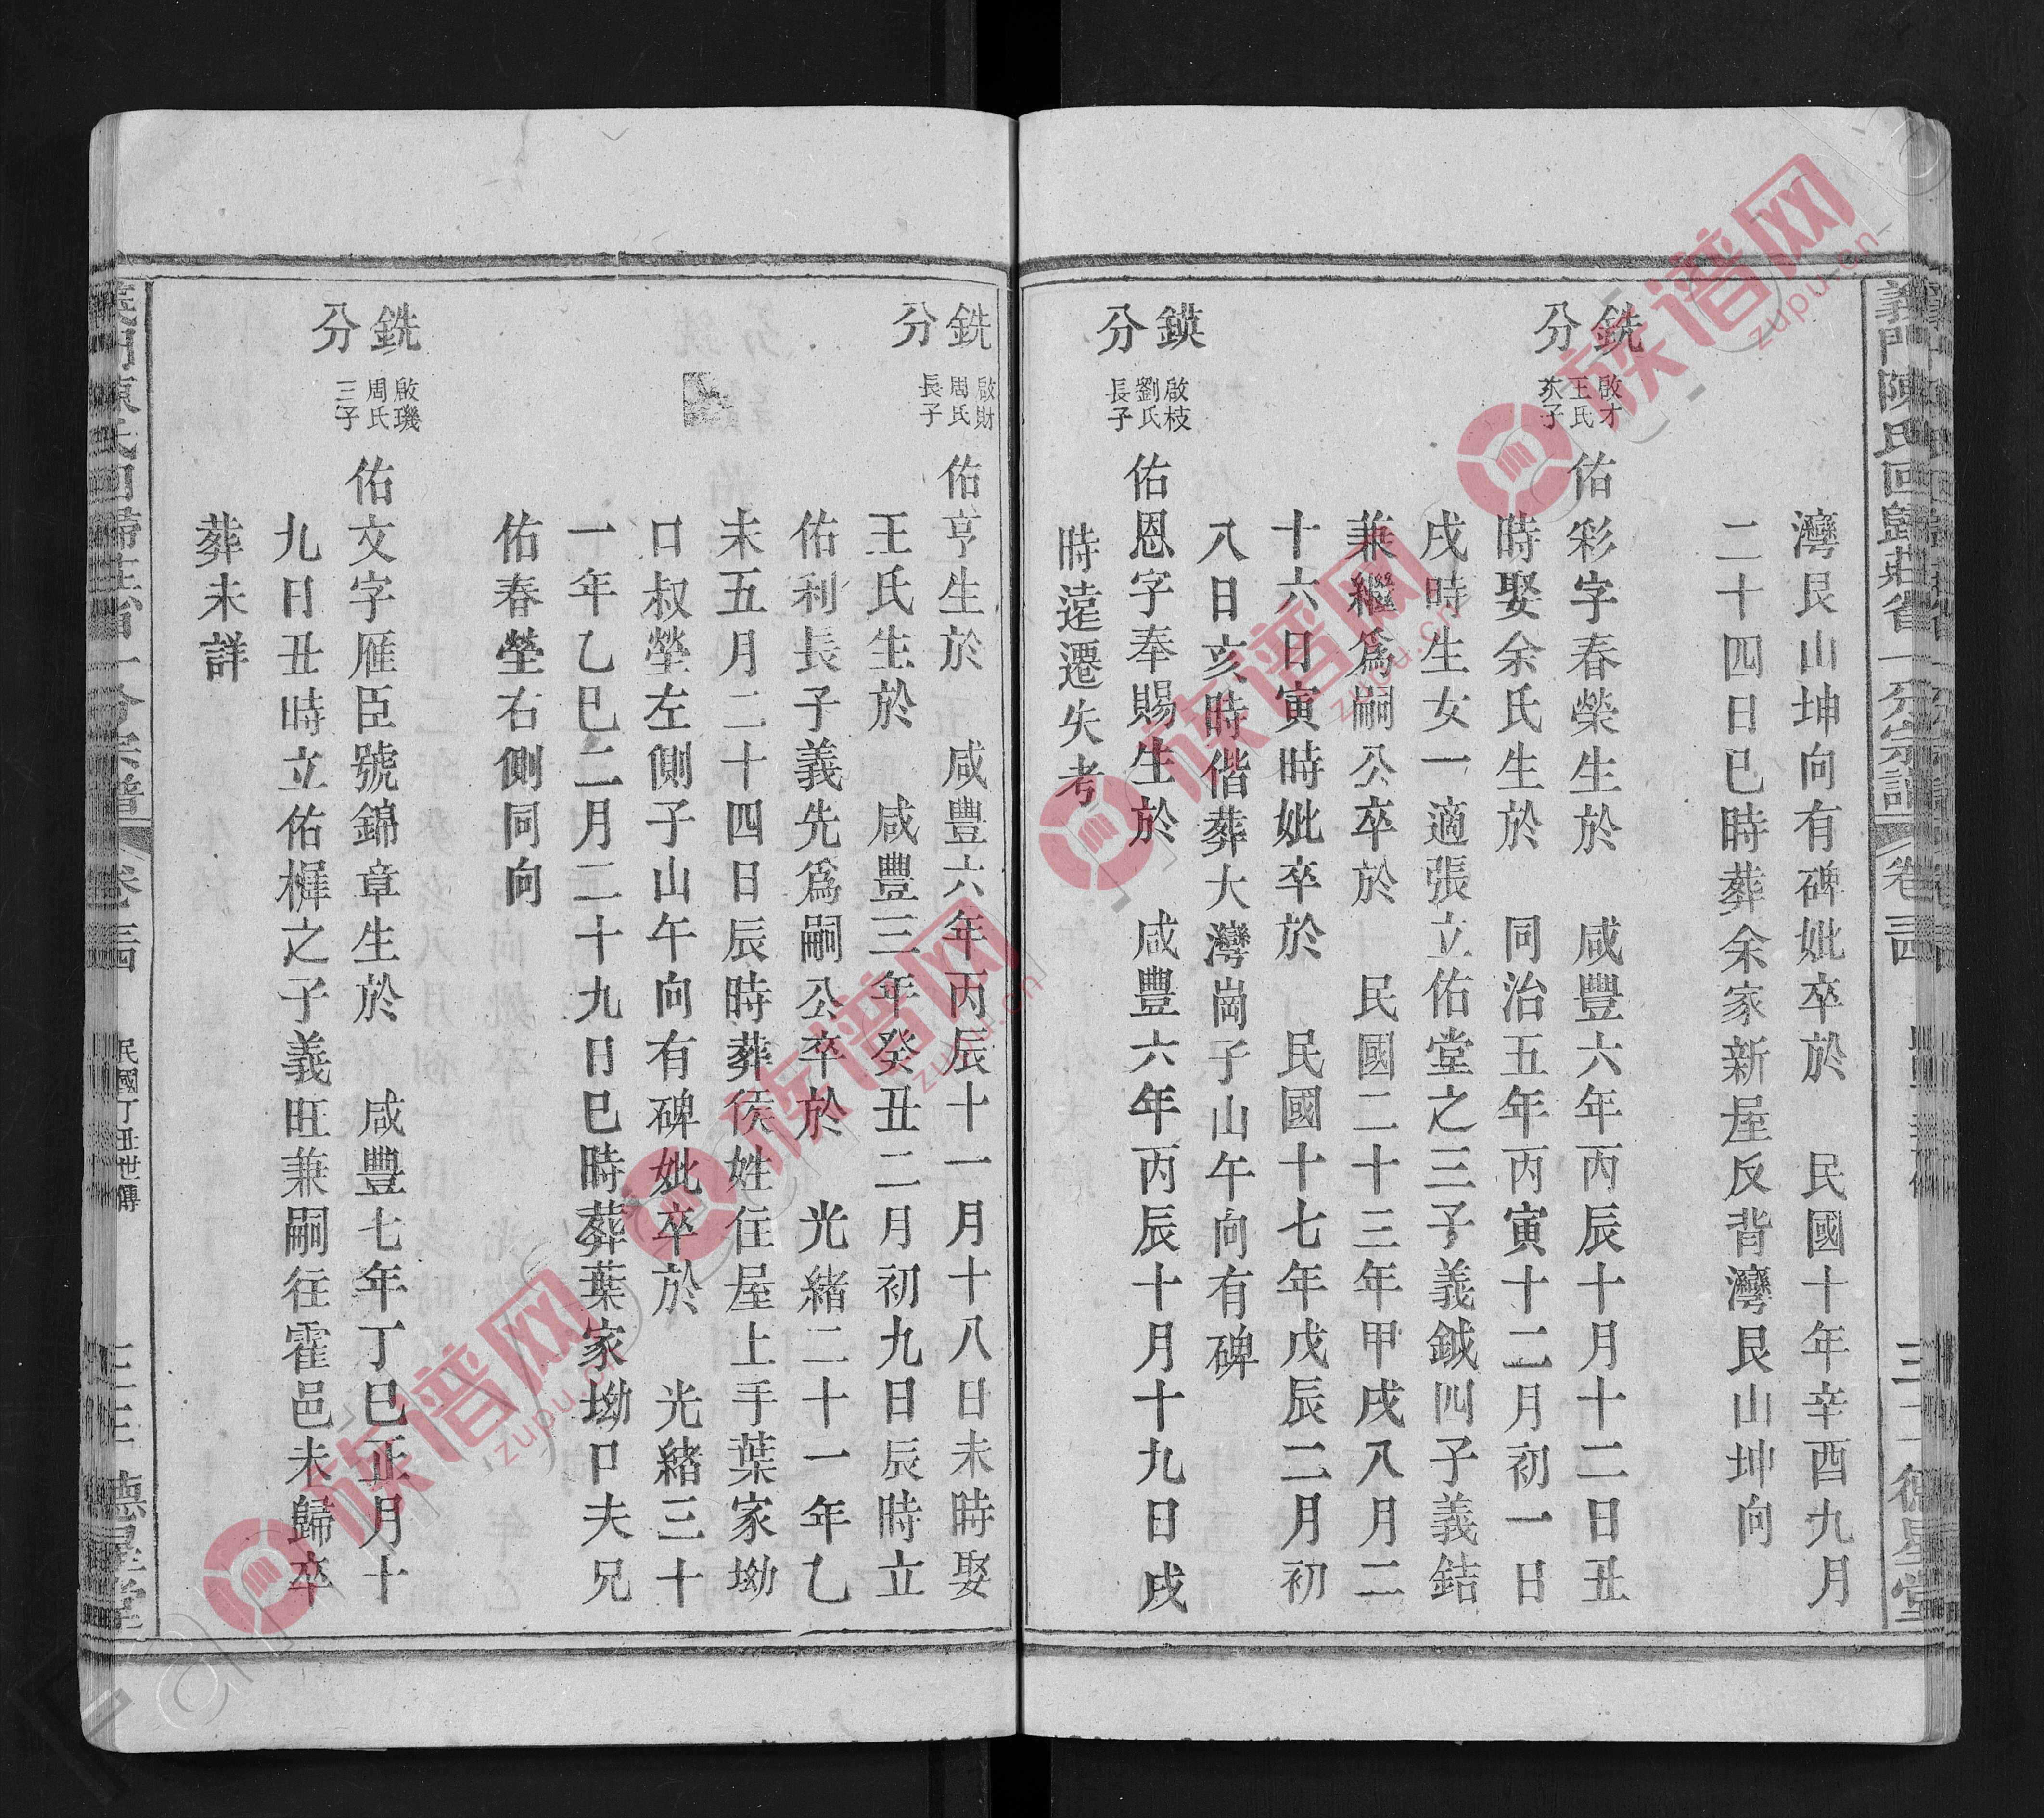 義門陳氏回歸莊省一分宗譜
卷三四
德星堂
灣艮山坤向有碑妣卒於　民國十年辛酉九月
二十四日巳時葬余家新屋反背灣艮山坤向
銑分
啟才王氏次子
佑彩字春榮生於　咸豐六年丙辰十月十二日丑
時娶余氏生於　同治五年丙寅十二月初一日
戌時生女一適張立佑堂之三子義鉞四子義銡
兼繼爲嗣公卒於　民國二十三年甲戌八月二
十六日寅時妣卒於　民國十七年戊辰二月初
八日亥時偕葬大灣崗子山午向有碑
鍈分
啟枝劉氏長子
佑恩字奉賜生於　咸豐六年丙辰十月十九日戌
時遠遷失考
銑分
啟財周氏長子
佑亨生於　咸豐六年丙辰十一月十八日未時娶
王氏生於　咸豐三年癸丑二月初九日辰時立
佑利長子義先爲嗣公卒於　光緒二十一年乙
未五月二十四日辰時葬侯姓住屋上手葉家坳
口叔塋左側子山午向有碑妣卒於　光緒三十
一年乙巳二月二十九日巳時葬葉家坳口夫兄
佑春塋右側同向
銑分
啟璣周氏三子
佑文字雁臣號錦章生於　咸豐七年丁巳正月十
九日丑時立佑樨之子義旺兼嗣往霍邑未歸卒
葬未詳
義門陳氏回歸莊省一分宗譜
卷三四
民國丁丑世傳
德星堂
族谱网
zupu.cn
族谱网
zupu.cn
族谱网
zupu.cn
族谱网
zupu.cn